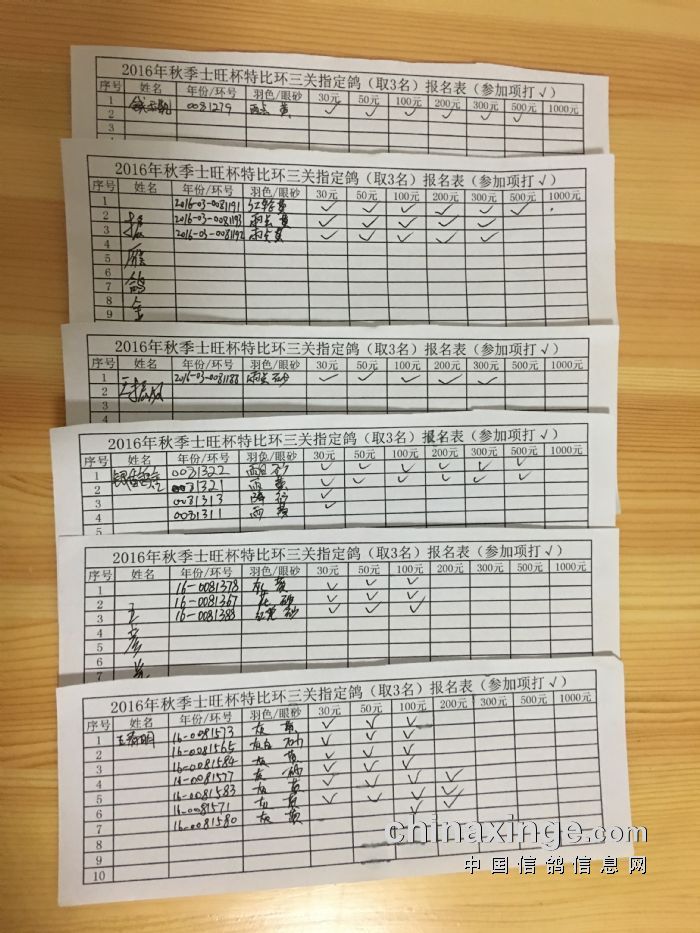 2016年秋季士旺杯特比环三关指定鸽（取3名）报名表（参加项打√）
序号 姓名 年份/环号 羽色/眼砂 30元 50元 100元 200元 300元 500元 1000元
1 0081279 雨点 黄 √ √ √ √ √ √
2
3
2016年秋季士旺杯特比环三关指定鸽（取3名）报名表（参加项打√）
序号 姓名 年份/环号 羽色/眼砂 30元 50元 100元 200元 300元 500元 1000元
1 2016-03-0081191 黄 √ √ √ √ √ √
2 2016-03-0081193 雨点 黄 √ √ √ √ √
3 2016-03-0081192 雨点 黄 √ √ √ √ √
4
5
6
7
8
9
2016年秋季士旺杯特比环三关指定鸽（取3名）报名表（参加项打√）
序号 姓名 年份/环号 羽色/眼砂 30元 50元 100元 200元 300元 500元 1000元
1 2016-03-0081188 雨点 砂 √ √ √ √ √
2 王振
3
4
2016年秋季士旺杯特比环三关指定鸽（取3名）报名表（参加项打√）
序号 姓名 年份/环号 羽色/眼砂 30元 50元 100元 200元 300元 500元 1000元
1 0081322 砂 √ √ √ √ √ √
2 0081321 雨 黄 √ √ √ √ √ √
3 0081313 √
4 0081311 雨 黄 √
5
2016年秋季士旺杯特比环三关指定鸽（取3名）报名表（参加项打√）
序号 姓名 年份/环号 羽色/眼砂 30元 50元 100元 200元 300元 500元 1000元
1 16-0081378 灰 黄 √ √ √
2 16-0081367 砂 √ √ √
3 王 16-0081388 砂 √ √ √
4
5 彦
6
7
2016年秋季士旺杯特比环三关指定鸽（取3名）报名表（参加项打√）
序号 姓名 年份/环号 羽色/眼砂 30元 50元 100元 200元 300元 500元 1000元
1 16-0081573 灰 黄 √ √ √
2 16-0081565 √ √ √
3 16-0081584 灰 黄 √ √ √
4 16-0081577 灰 砂 √ √ √ √
5 16-0081583 灰 黄 √ √ √ √
6 16-0081571 灰 黄 √ √ √ √
7 16-0081580 灰 黄 √ √
8
9
10
chinaxinge.com
中国信鸽信息网